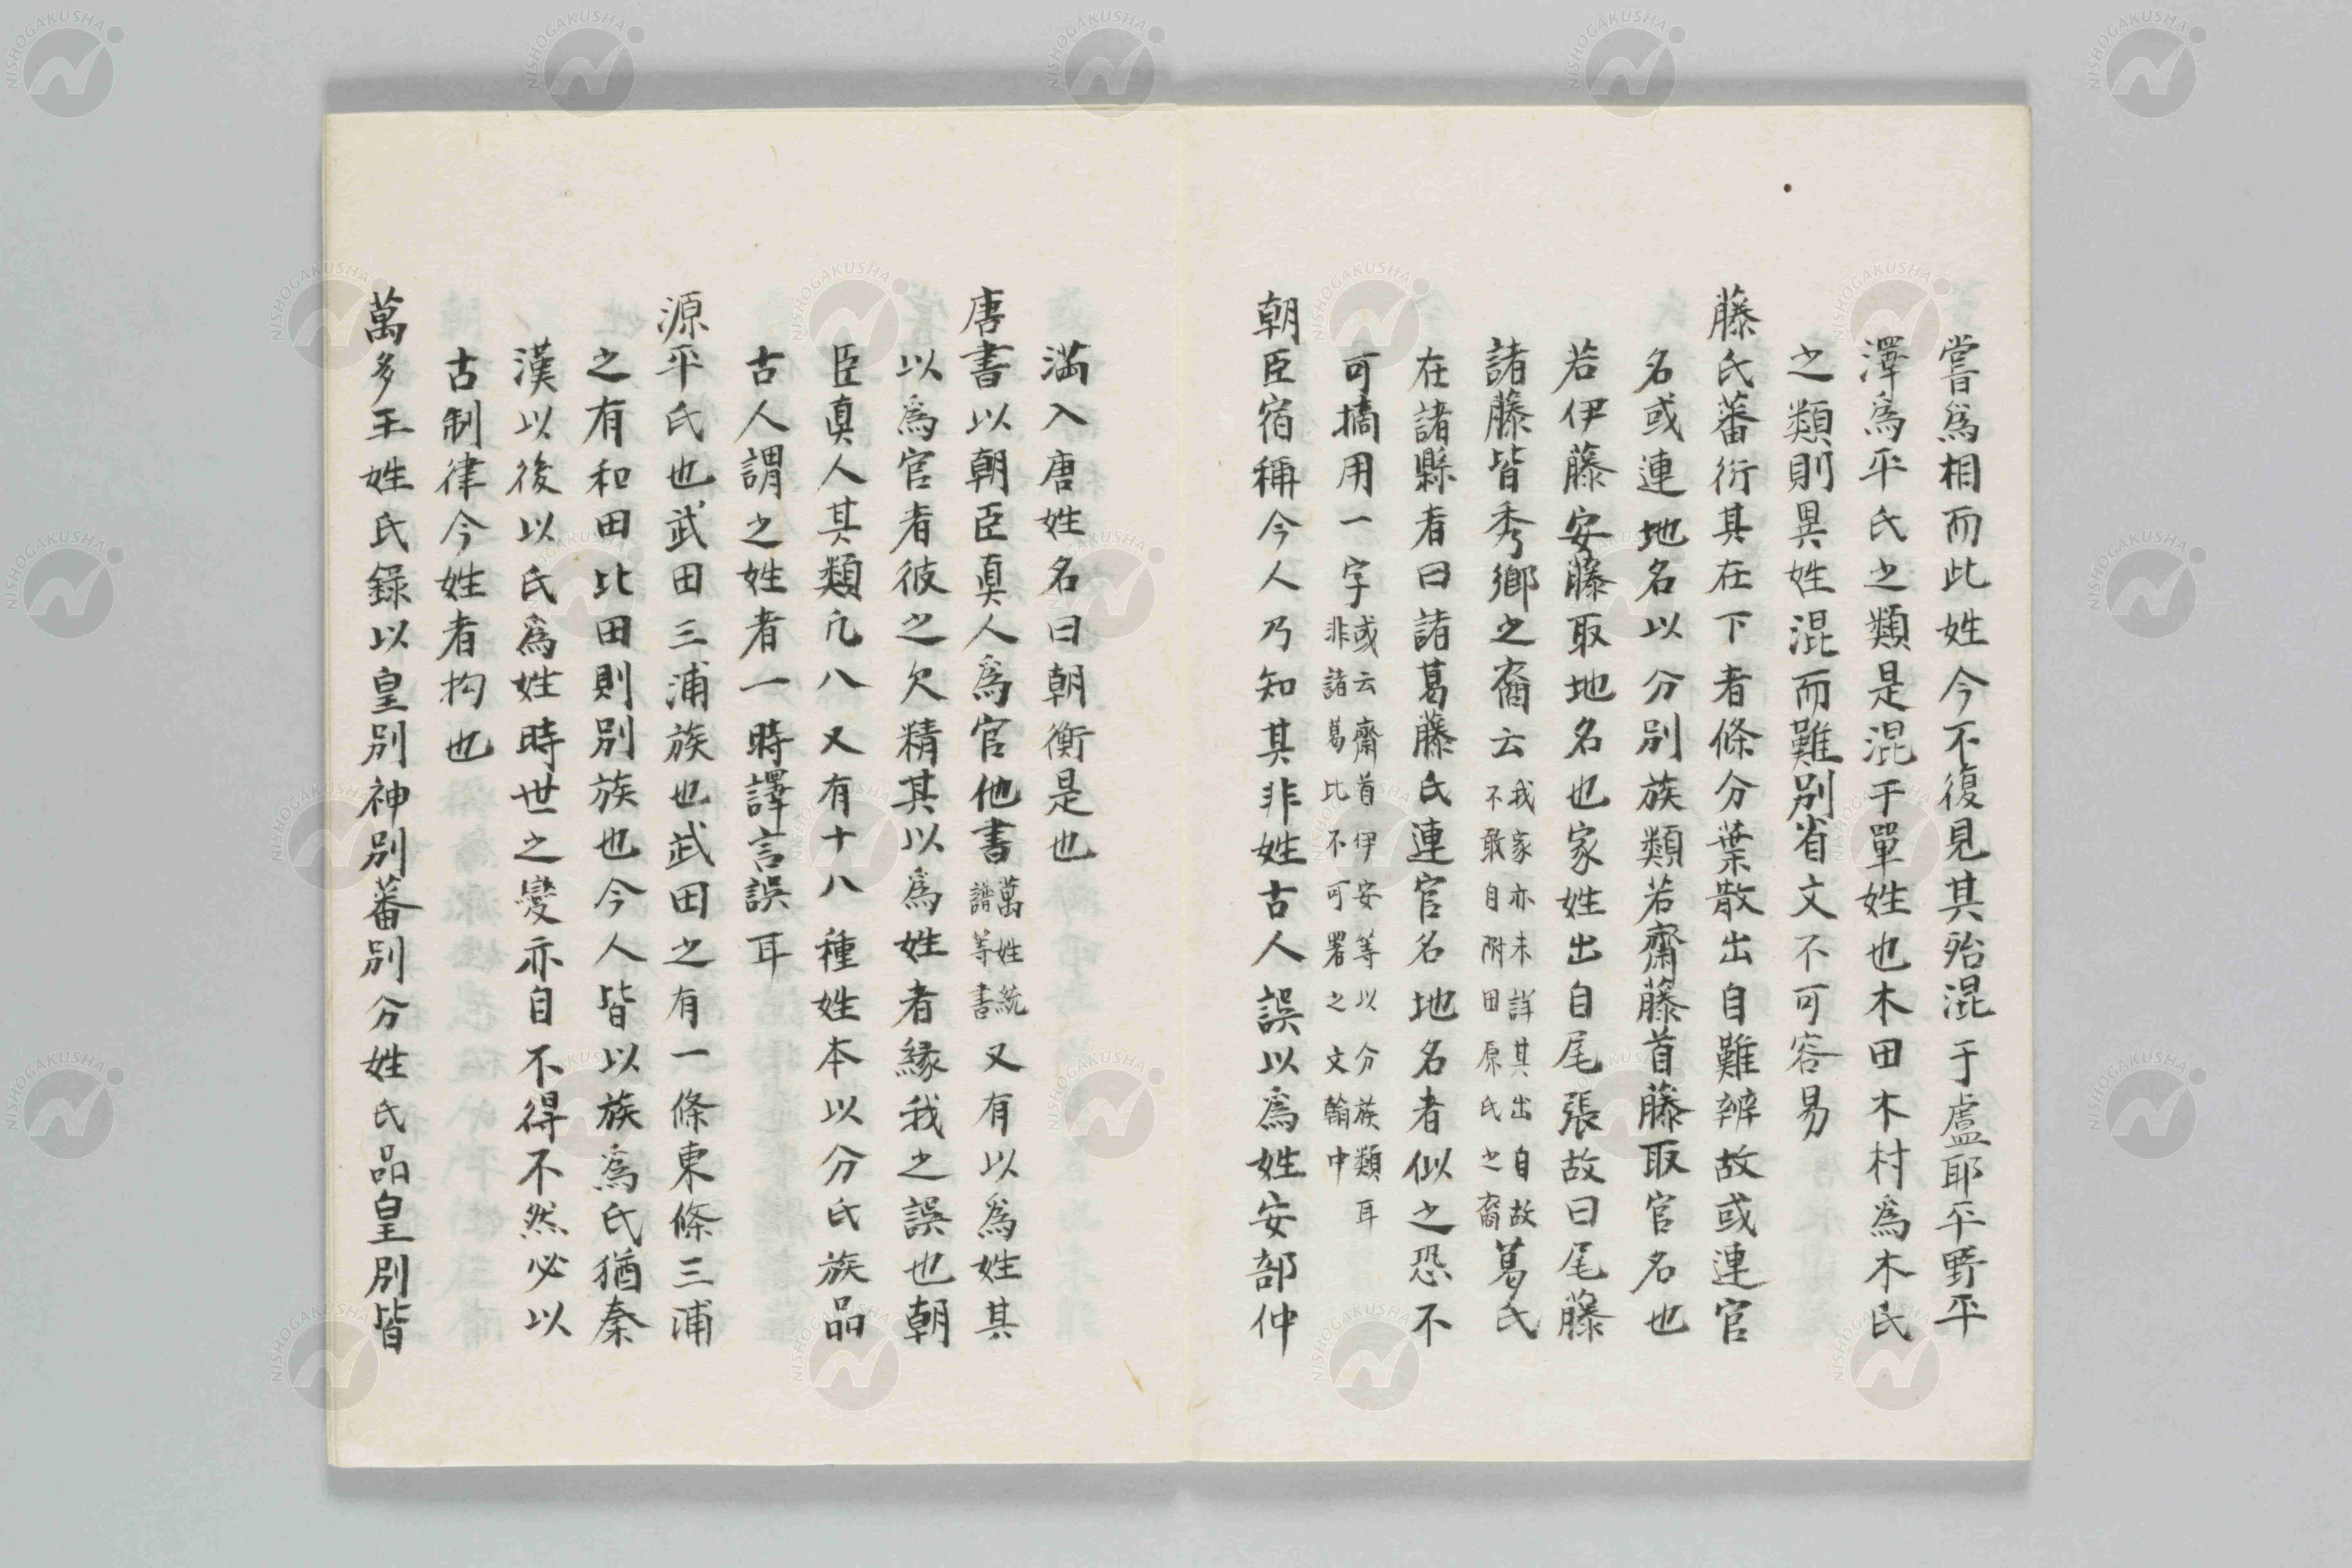 嘗爲相而此姓今不復見其殆混于盧耶平野平
澤爲平氏之類是混于單姓也木田木村爲木氏
之類則異姓混而難別省文不可容易
藤氏蕃衍其在下者條分葉散出自難辨故或連官
名或連地名以分別族類若齋藤首藤取官名也
若伊藤安藤取地名也家姓出自尾張故曰尾藤
諸藤皆秀鄕之裔云我家亦未詳其出自故不敢自附田原氏之裔葛氏
在諸縣者曰諸葛藤氏連官名地名者似之恐不
可摘用一字或云齋首伊安等以分族類耳非諸葛比不可署之文翰中
朝臣宿稱今人乃知其非姓古人誤以爲姓安部仲
滿入唐姓名曰朝衡是也
唐書以朝臣眞人爲官他書萬姓統譜等書又有以爲姓其
以爲官者彼之欠精其以爲姓者緣我之誤也朝
臣眞人其類凡八又有十八種姓本以分氏族品
古人謂之姓者一時譯言誤耳
源平氏也武田三浦族也武田之有一條東條三浦
之有和田比田則別族也今人皆以族爲氏猶秦
漢以後以氏爲姓時世之變亦自不得不然必以
古制律今姓者拘也
萬多王姓氏錄以皇別神別蕃別分姓氏品皇別皆
NISHOGAKUSHA